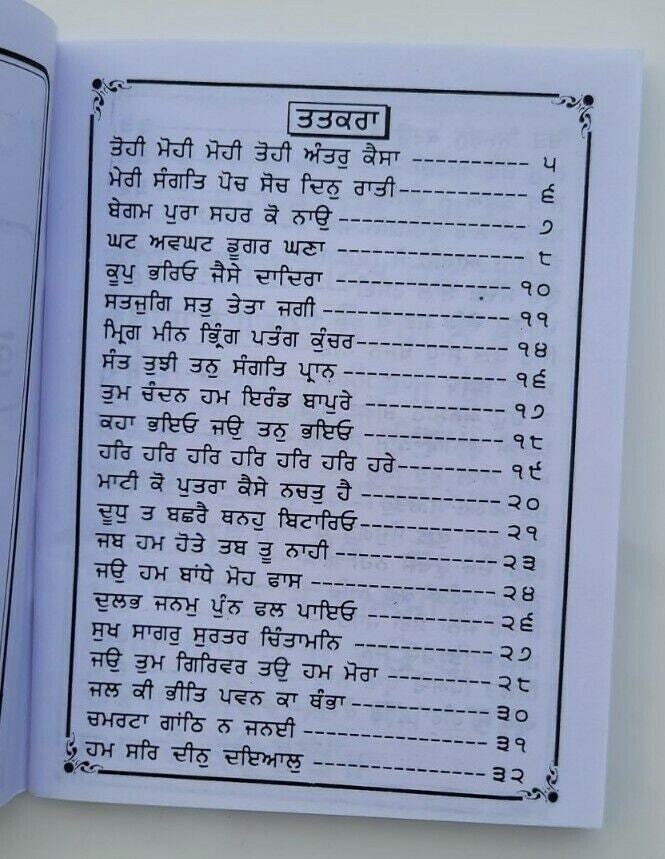 ਤਤਕਰਾ
ਤੋਹੀ ਮੋਹੀ ਮੋਹੀ ਤੋਹੀ ਅੰਤਰੁ ਕੈਸਾ ---------- ੫
ਮੇਰੀ ਸੰਗਤਿ ਪੋਚ ਸੋਚ ਦਿਨੁ ਰਾਤੀ------------ ੬
ਬੇਗਮ ਪੁਰਾ ਸਹਰ ਕੋ ਨਾਉ ----------------- ੭
ਘਟ ਅਵਘਟ ਡੂਗਰ ਘਣਾ ----------------- ੮
ਕੂਪੁ ਭਰਿਓ ਜੈਸੇ ਦਾਦਿਰਾ ----------------- ੧੦
ਸਤਜੁਗਿ ਸਤੁ ਤੇਤਾ ਜਗੀ ----------------- ੧੧
ਮ੍ਰਿਗ ਮੀਨ ਭ੍ਰਿੰਗ ਪਤੰਗ ਕੁੰਚਰ-------------- ੧੪
ਸੰਤ ਤੁਝੀ ਤਨੁ ਸੰਗਤਿ ਪ੍ਰਾਨ --------------- ੧੬
ਤੁਮ ਚੰਦਨ ਹਮ ਇਰੰਡ ਬਾਪੁਰੇ -------------- ੧੭
ਕਹਾ ਭਇਓ ਜਉ ਤਨੁ ਭਇਓ ------------- ੧੮
ਹਰਿ ਹਰਿ ਹਰਿ ਹਰਿ ਹਰਿ ਹਰਿ ਹਰੇ---------- ੧੯
ਮਾਟੀ ਕੋ ਪੁਤਰਾ ਕੈਸੇ ਨਚਤੁ ਹੈ ------------- ੨੦
ਦੂਧੁ ਤ ਬਛਰੈ ਥਨਹੁ ਬਿਟਾਰਿਓ------------- ੨੧
ਜਬ ਹਮ ਹੋਤੇ ਤਬ ਤੂ ਨਾਹੀ --------------- ੨੩
ਜਉ ਹਮ ਬਾਂਧੇ ਮੋਹ ਫਾਸ ----------------- ੨੪
ਦੁਲਭ ਜਨਮੁ ਪੁੰਨ ਫਲ ਪਾਇਓ ------------- ੨੬
ਸੁਖ ਸਾਗਰੁ ਸੁਰਤਰ ਚਿੰਤਾਮਨਿ -------------- ੨੭
ਜਉ ਤੁਮ ਗਿਰਿਵਰ ਤਉ ਹਮ ਮੋਰਾ ---------- ੨੮
ਜਲ ਕੀ ਭੀਤਿ ਪਵਨ ਕਾ ਥੰਭਾ ------------- ੩੦
ਚਮਰਟਾ ਗਾਂਠਿ ਨ ਜਨਈ ----------------- ੩੧
ਹਮ ਸਰਿ ਦੀਨੁ ਦਇਆਲੁ ----------------- ੩੨